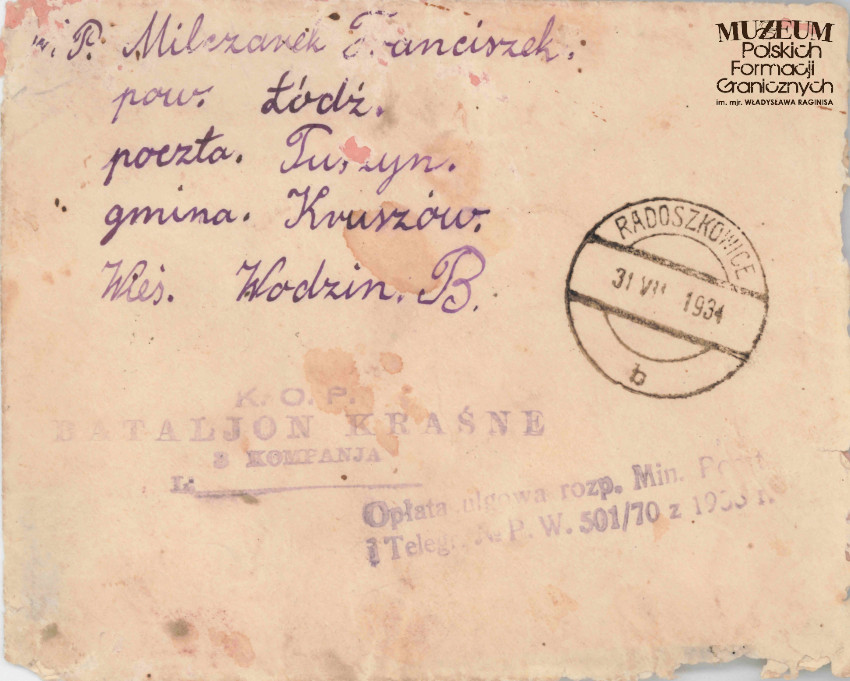 W. P. Milczarek Franciszek.
pow. Łódź.
poczta. Tuszyn.
gmina. Kruszów.
Wieś. Wodzin. B.
MUZEUM
Polskich
Formacji
Granicznych
im. mjr. WŁADYSŁAWA RAGINISA
RADOSZKOWICE
31 VII 1934
b
K. O. P.
BATALJON KRAŚNE
3 KOMPANJA
L:
Opłata ulgowa rozp. Min. Poczt
i Telegr. № P. W. 501/70 z 1933 r.